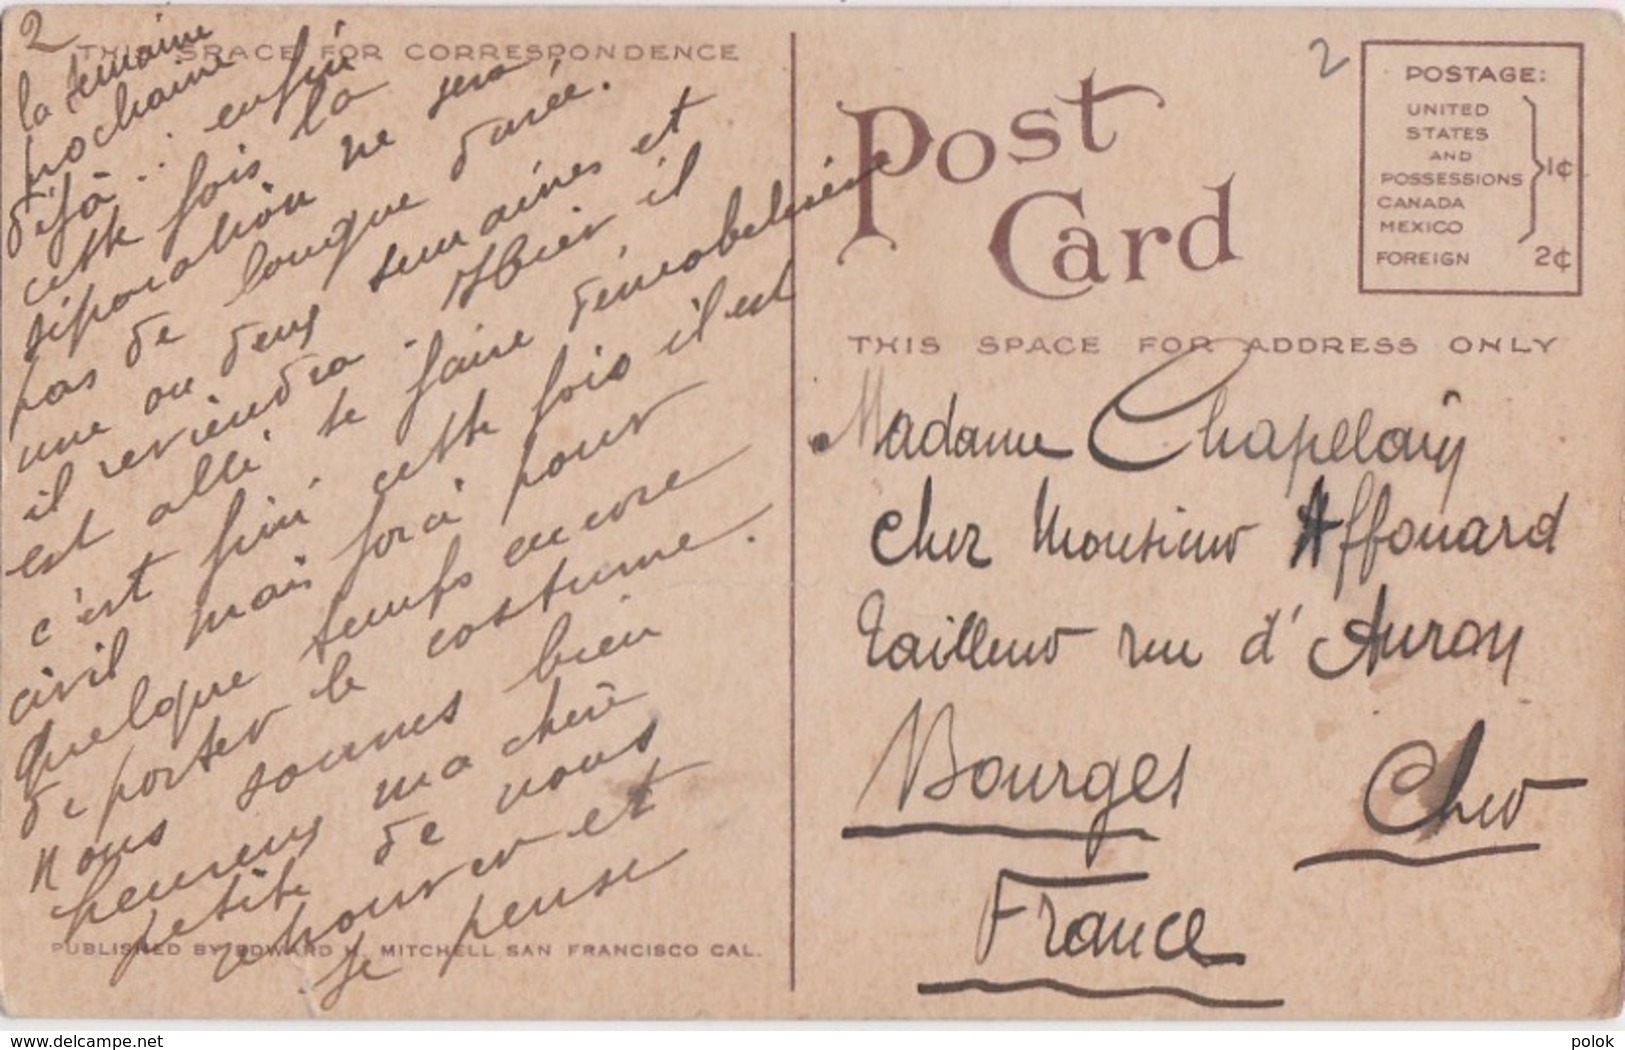 2
THIS SPACE FOR CORRESPONDENCE
la semaine
prochaine
déjà... enfin
cette fois la
séparation ne sera
pas de longue durée.
une ou deux semaines et
il reviendra. Hier il
est allé se faire démobeliser
c'est fini cette fois il est
civil mais forcé pour
quelque temps encore
de porter le costume.
Nous sommes bien
heureux ma chère
petite de vous
et
je pense
PUBLISHED BY EDWARD H. MITCHELL SAN FRANCISCO CAL.
Post
Card
2
POSTAGE:
UNITED
STATES
AND
POSSESSIONS
CANADA
MEXICO
1¢
FOREIGN 2¢
THIS SPACE FOR ADDRESS ONLY
Madame Chapelain
chez Monsieur Affouard
Tailleur rue d'Auron
Bourges Cher
France
www.delcampe.net
polok